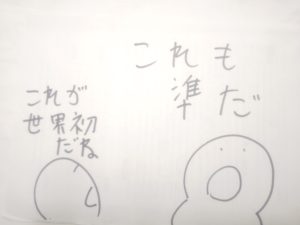 これも
準だ
これが
世界初
だね